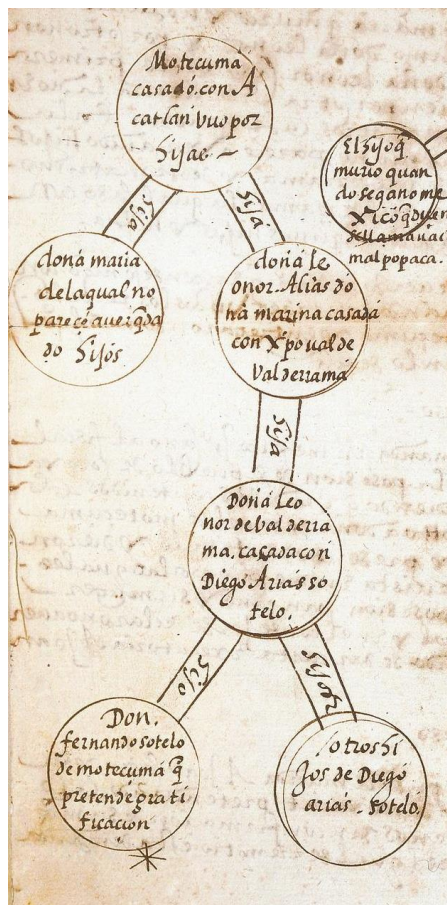 Motecuma
casado.con A
catlan vuo por
hijas —
El hijo q̃
murio quan
do se gano me
xico q̃ dizen
se llamaua
mal popaca.
hija
hija
doña maria
de la qual no
pareçe auer q̃da
do hijos
doña le
onor. Alias do
ña marina casada
con xp̃oual de
Valderrama
hija
Doña Leo
nor de bal derra
ma. casada con
Diego Arias so
telo.
hijo
hijos
Don.
fernando sotelo
de motecuma q̃
pretende grati
ficaçion
otros hi
jos de Diego
arias. sotelo.